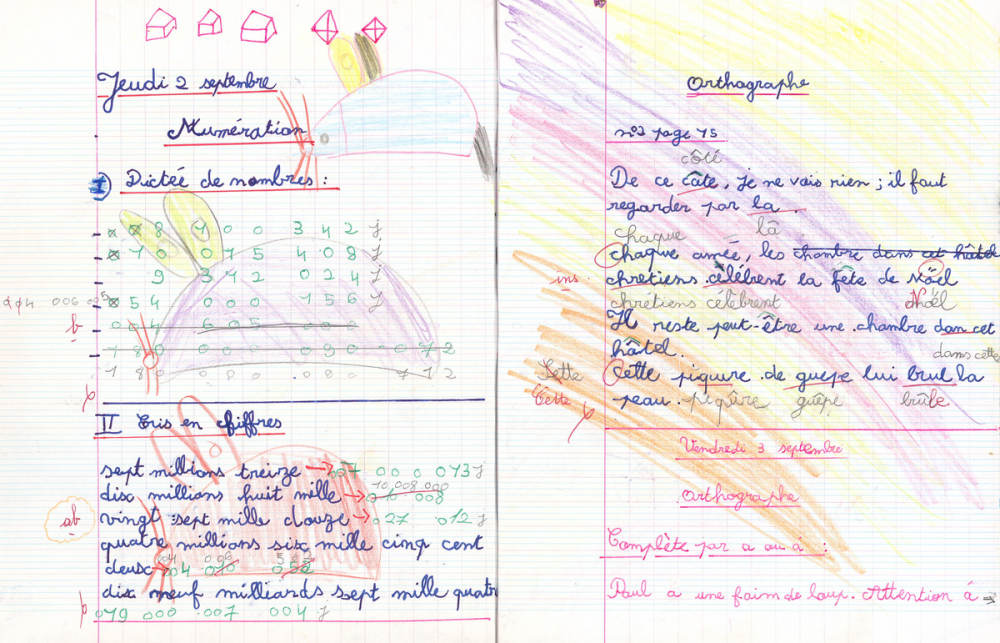 Jeudi 2 septembre
Numération
I Dictée de nombres :
8 400 342 J
70 075 408 J
9 342 024 J
54 000 156 J
b
180 080 080 712
p
II Ecris en chiffres
sept millions treize → 7 000 013 J
10 008 000
dix millions huit mille → 010 008
ab
vingt sept mille douze → 027 012 J
quatre millions six mille cinq cent
deux 04 010 352
dix neuf milliards sept mille quatre
p 019 000 007 004 J
Orthographe
n°2 page 15
côté
De ce câte, je ne vais rien ; il faut
regarder par la .
chaque là
chaque année, les chambre dans cet hâtel
ins. chrétiens célèbrent la fête de Nöel
chrétiens célèbrent Nhoël
Il reste peut-être une chambre dan cet
hâtel.
dans cette
Cette Cette piqure de guepe lui brul la
Cette peau. piqûre guêpe brûle
p
Vendredi 3 septembre
Orthographe
Complète par a ou à :
Paul a une faim de loup. Attention à →